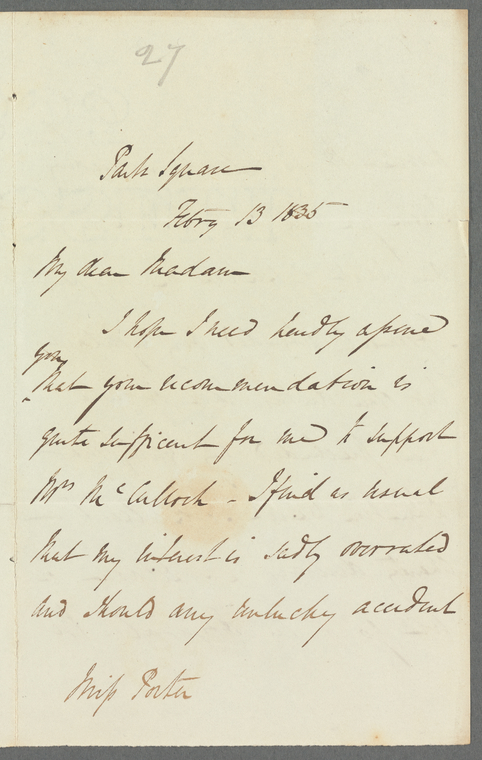 27
Park Square
Febry 13 1835
My dear Madam
I hope I need hardly assure
you
that your recommendation is
quite sufficient for me to support
Mrs McCulloch - I find as usual
that my interest is sadly overrated
and should any unlucky accident
Miss Porter